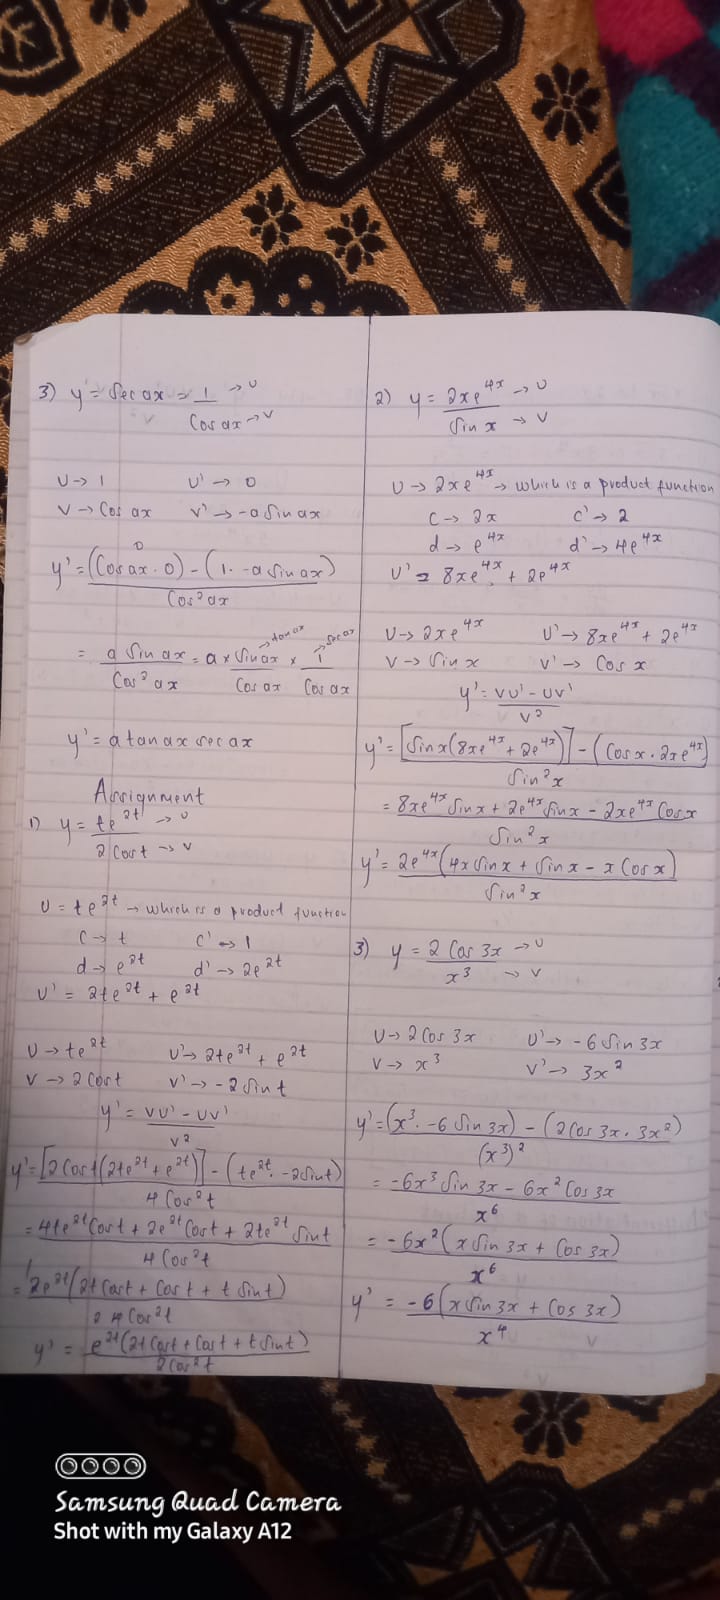 3) y' = Sec ax = 1 → U
Cos ax → V
U → 1 U' → 0
V → Cos ax V' → -a Sin ax
0
y' = (Cos ax · 0) - (1 · -a Sin ax)
Cos² ax
→ tan ax → sec ax
= a Sin ax = a x Sin ax x 1
Cos² ax Cos ax Cos ax
y' = a tan ax sec ax
Assignment
1) y = te^2t → U
2 Cos t → V
U = te^2t → which is a product function
C → t C' → 1
d → e^2t d' → 2e^2t
U' = 2te^2t + e^2t
U → te^2t U' → 2te^2t + e^2t
V → 2 Cos t V' → -2 Sin t
y' = VU' - UV'
V²
y' = [2 Cos t (2te^2t + e^2t)] - (te^2t · -2 Sin t)
4 Cos² t
= 4te^2t Cos t + 2e^2t Cos t + 2te^2t Sin t
4 Cos² t
1
= 2e^2t (2t Cos t + Cos t + t Sin t)
2 4 Cos² t
y' = e^2t (2t Cos t + Cos t + t Sin t)
2 Cos² t
2) y = 2xe^4x → U
Sin x → V
U → 2xe^4x → which is a product function
C → 2x C' → 2
d → e^4x d' → 4e^4x
U' = 8xe^4x + 2e^4x
U → 2xe^4x U' → 8xe^4x + 2e^4x
V → Sin x V' → Cos x
y' = VU' - UV'
V²
y' = [Sin x (8xe^4x + 2e^4x)] - (Cos x · 2xe^4x)
Sin² x
= 8xe^4x Sin x + 2e^4x Sin x - 2xe^4x Cos x
Sin² x
y' = 2e^4x (4x Sin x + Sin x - x Cos x)
Sin² x
3) y = 2 Cos 3x → U
x³ → V
U → 2 Cos 3x U' → -6 Sin 3x
V → x³ V' → 3x²
y' = (x³ · -6 Sin 3x) - (2 Cos 3x · 3x²)
(x³)²
= -6x³ Sin 3x - 6x² Cos 3x
x⁶
= -6x² (x Sin 3x + Cos 3x)
x⁶
y' = -6 (x Sin 3x + Cos 3x)
x⁴
Samsung Quad Camera
Shot with my Galaxy A12